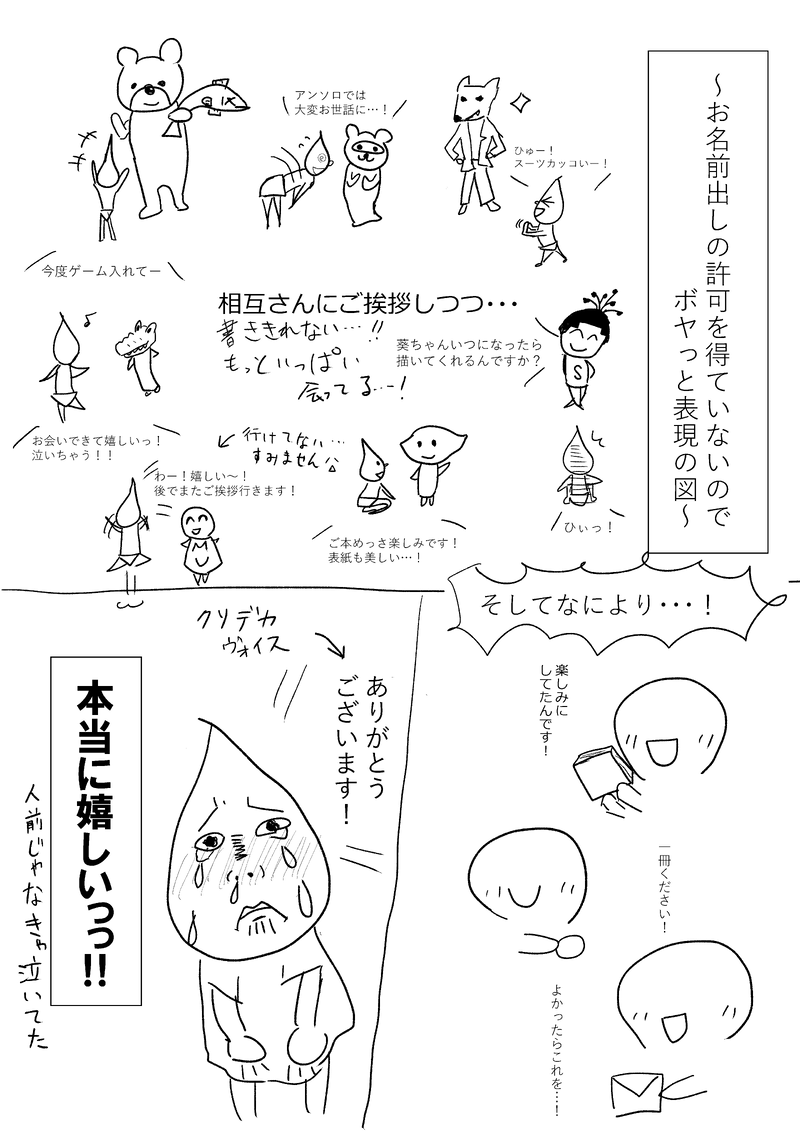 ～お名前出しの許可を得ていないので
ボヤっと表現の図～
ひゅー！
スーツカッコいー！
アンソロでは
大変お世話に…！
今度ゲーム入れてー
相互さんにご挨拶しつつ・・・
書ききれない…!!
もっといっぱい
会ってる…ー!
葵ちゃんいつになったら
描いてくれるんですか？
S
ひぃっ！
お会いできて嬉しいっ！
泣いちゃう！！
行けてない…
すみません
わー！嬉しい～！
後でまたご挨拶行きます！
M
ご本めっさ楽しみです！
表紙も美しい…！
そしてなにより・・・！
楽しみに
してたんです！
一冊ください！
よかったらこれを…！
クソデカ
ヴォイス
ありがとう
ございます！
本当に嬉しいっっ!!
人前じゃなきゃ泣いてた